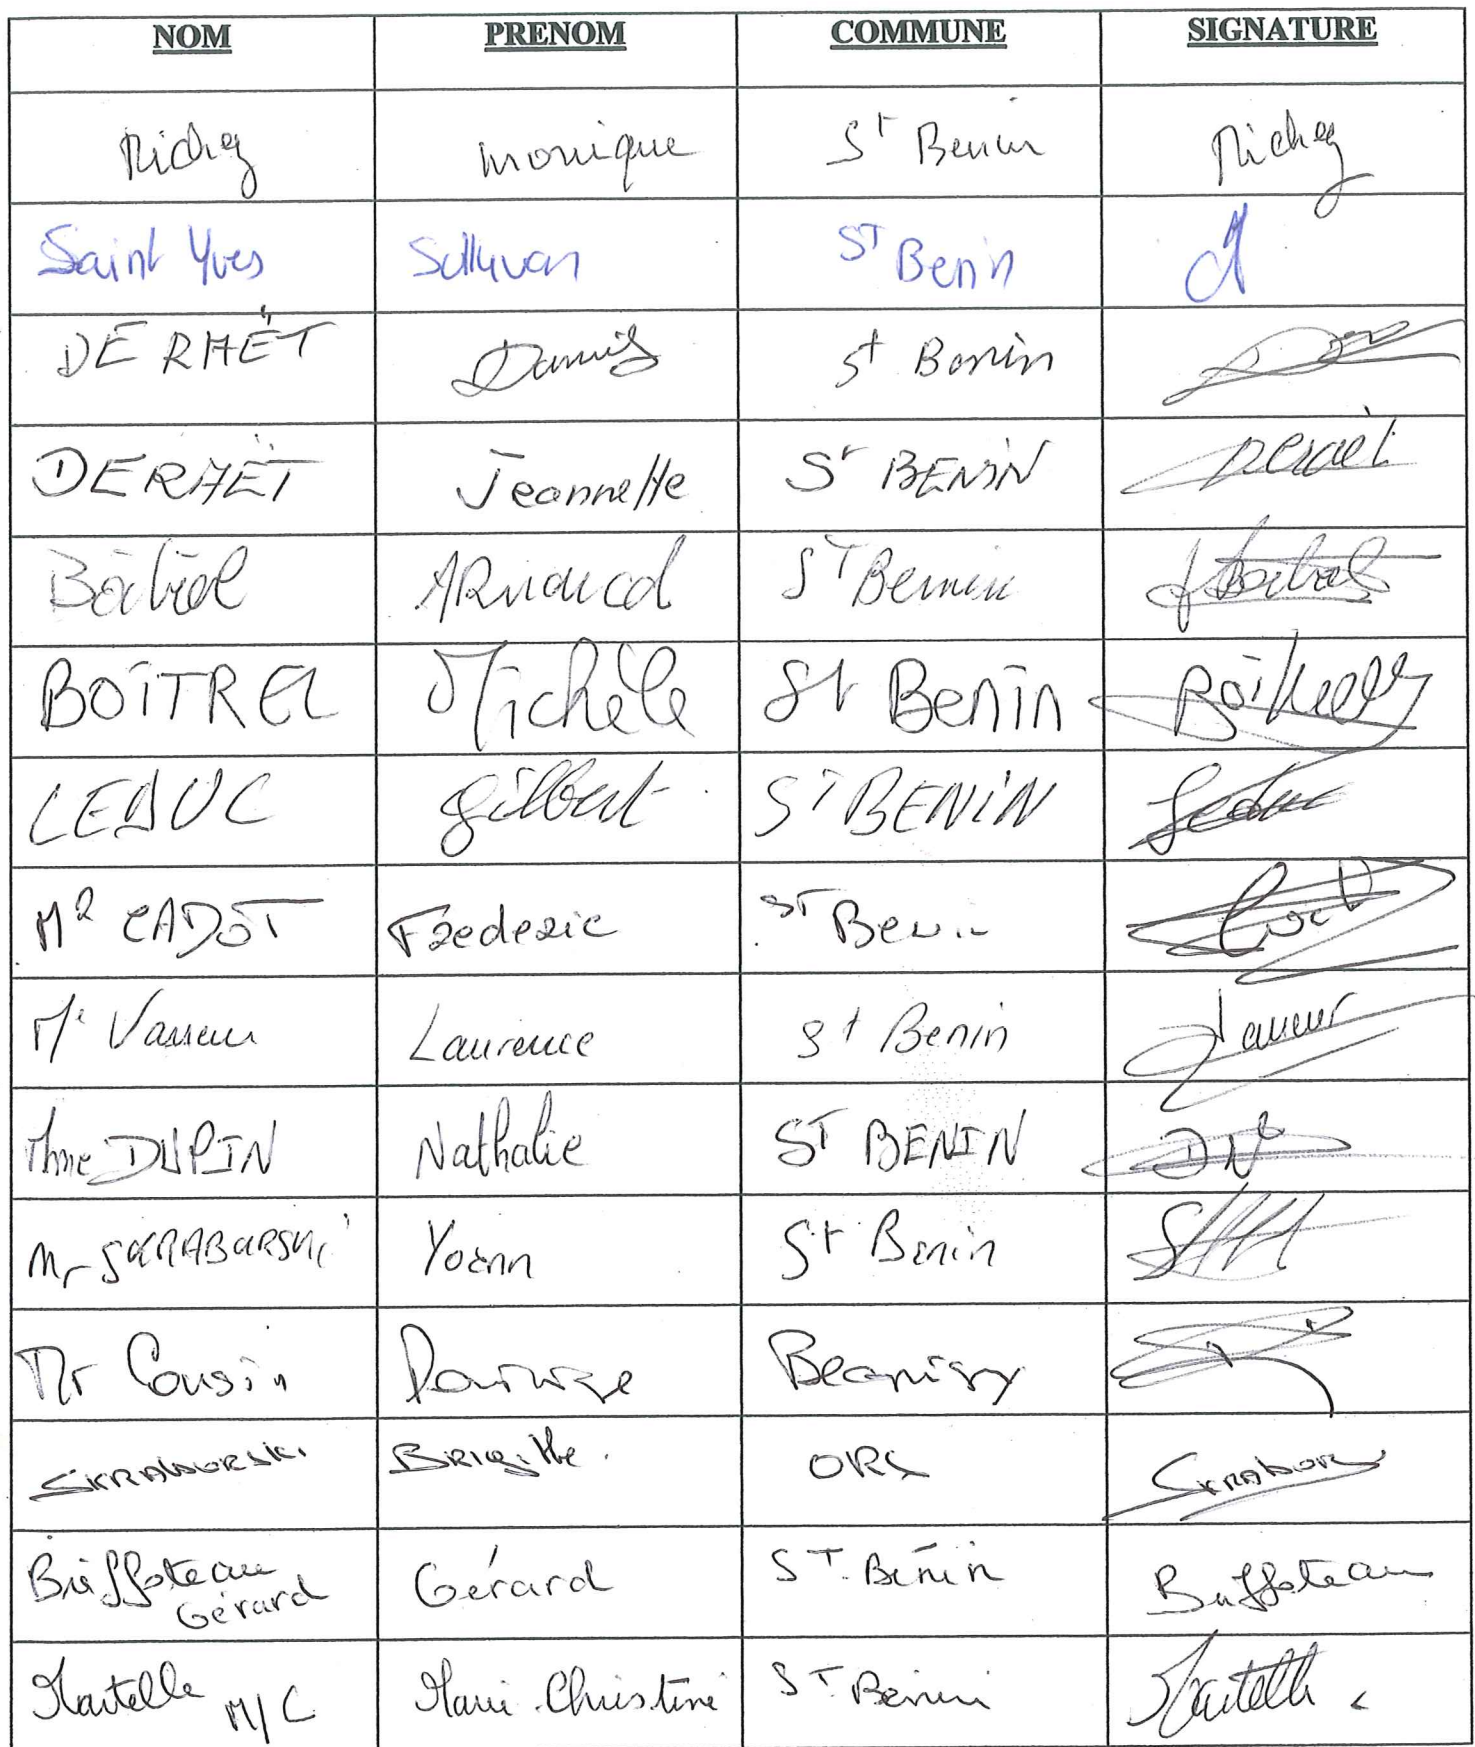 NOM PRENOM COMMUNE SIGNATURE
Richez Monique St Benin Richez
Saint Yves Sullivan ST Benin
DERHËT Danis St Benin
DERHËT Jeannette St BENIN
Boitrel ARnaud ST Benin Boitrel
BOÎTREL Michèle St Benin Boitrel
LEDUC Gilbert ST BENIN Leduc
Mr CADOT Frederic ST Benin
Mr Vasseur Laurence St Benin Vasseur
Mme DUPIN Nathalie ST BENIN DN
Mr SKRABURSKI Yoann St Benin
Mr Cousin Becquigny
SKRABURSKI BRIGitte. ORS SKRABUR
Buffoteau Gérard Gérard ST. Benin Buffoteau
Martelle M/C Marie-Christine ST. Benin Martelle